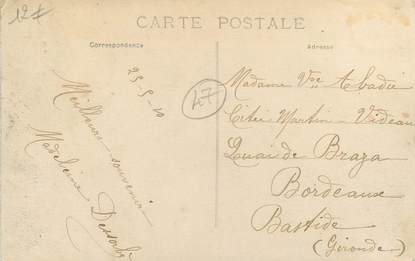 12f
CARTE POSTALE
Correspondance
Adresse
25-5-10
Meilleur souvenir
Madeleine
47
Madame Vve Abadie
Citée Martin - Videau
Quai de Braza
Bordeaux
Bastide
(Gironde)